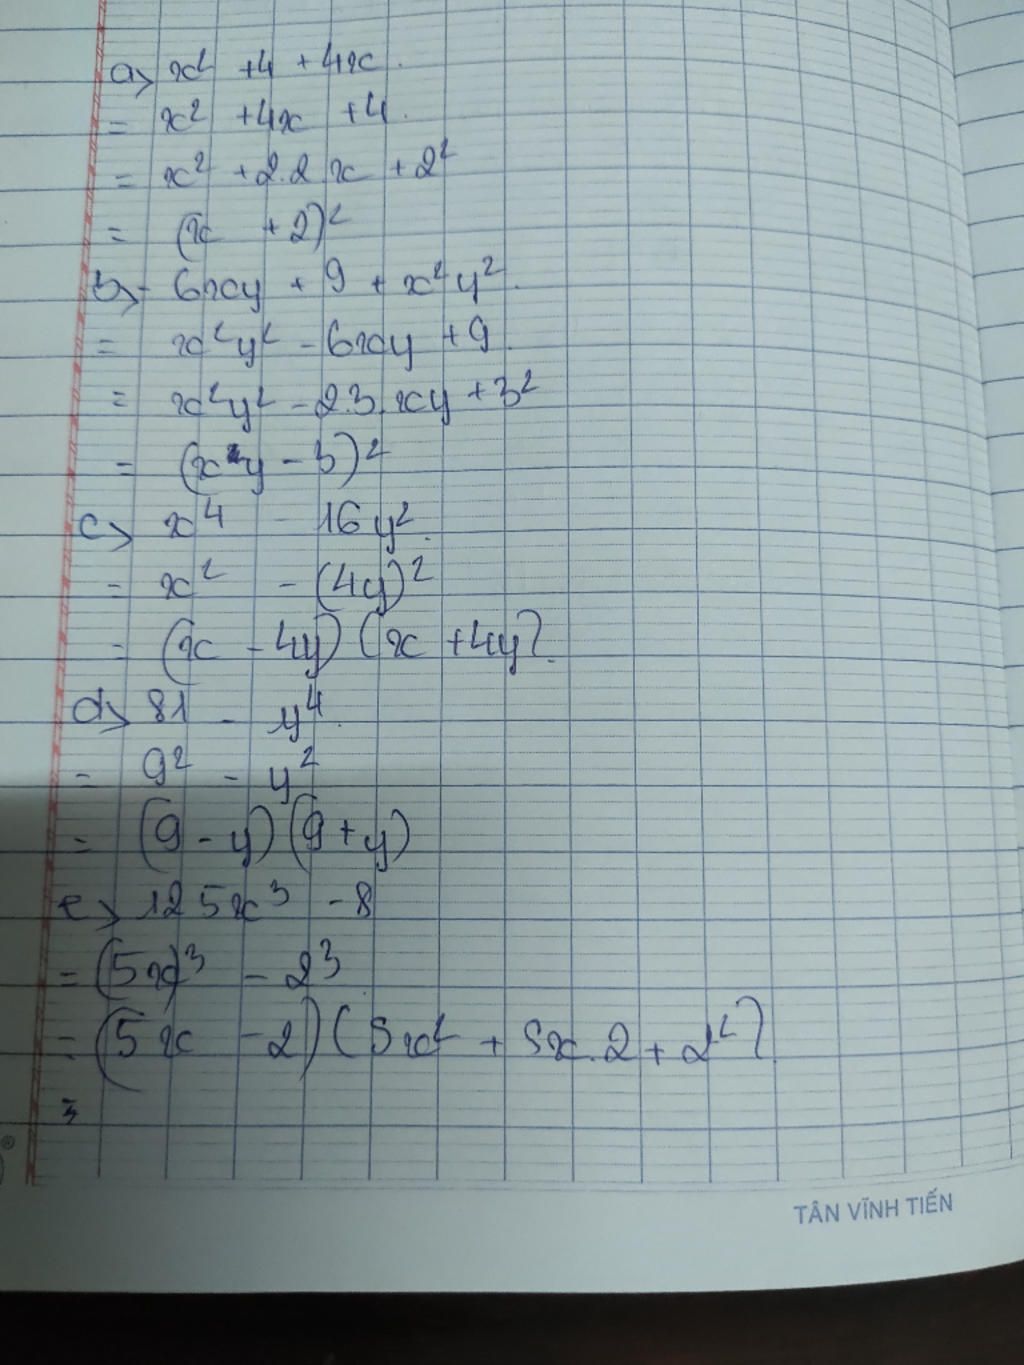 a> x² + 4 + 4x.
= x² + 4x + 4.
= x² + 2.2 x + 2²
= (x + 2)²
b> - 6xy + 9 + x²y².
= x²y² - 6xy + 9.
= x²y² - 2.3.xy + 3²
= (xy - 3)²
c> x⁴ - 16y².
= x² - (4y)²
= (x - 4y) (x + 4y).
d> 81 - y⁴.
= 9² - y²
= (9 - y) (9 + y)
e> 125x³ - 8
= (5x)³ - 2³
= (5x - 2) (5x² + 5x.2 + 2²).
=
TÂN VĨNH TIẾN